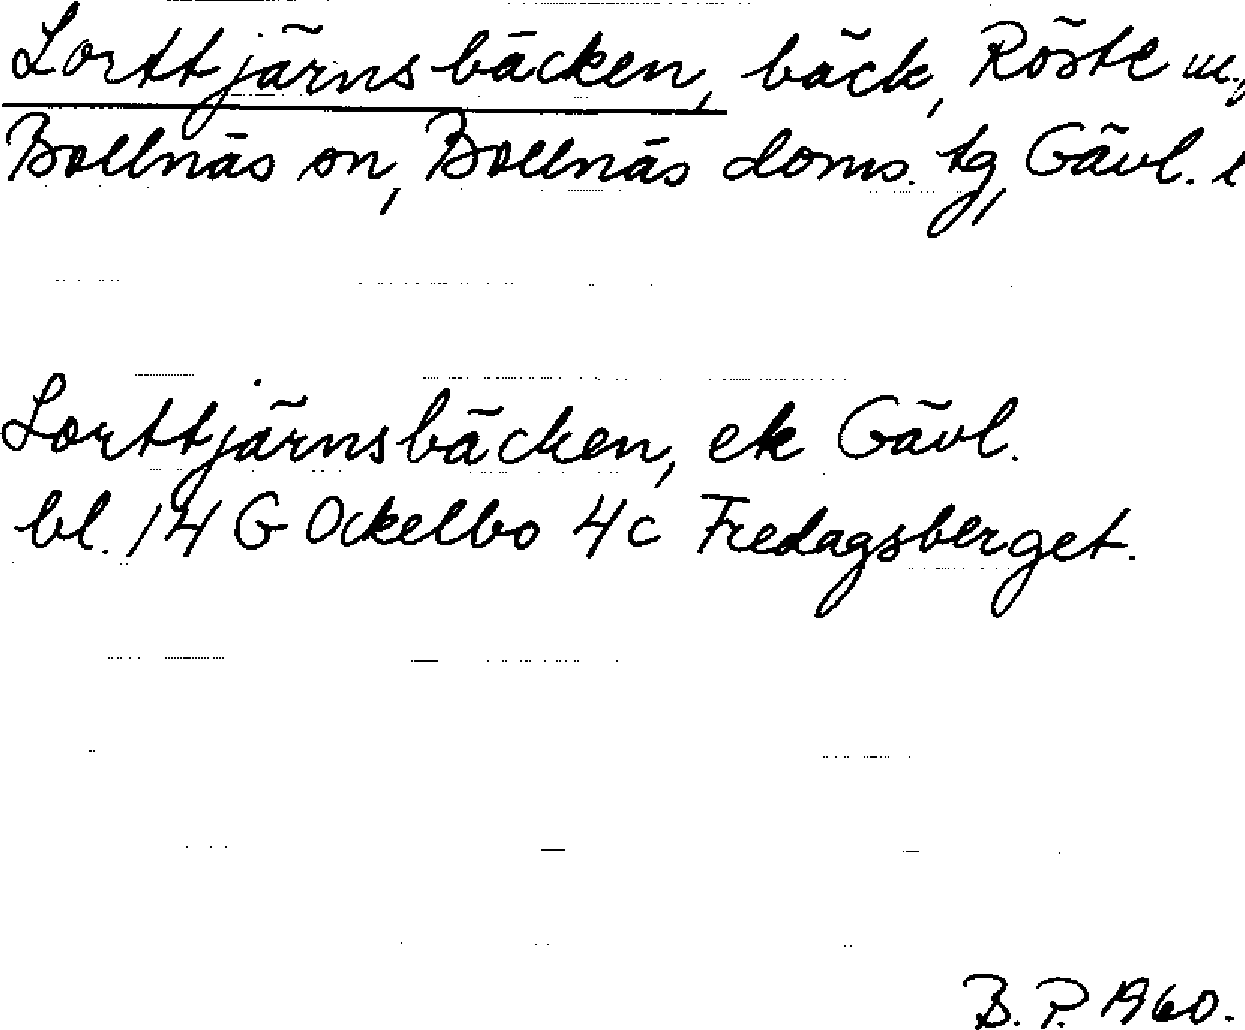 Lorttjärnsbäcken, bäck, Röste m.,
Bollnäs sn, Bollnäs doms. tg, Gävl. l
Lorttjärnsbäcken, ek Gävl.
bl. 14 G Ockelbo 4c Fredagsberget.
B. P. 1960.